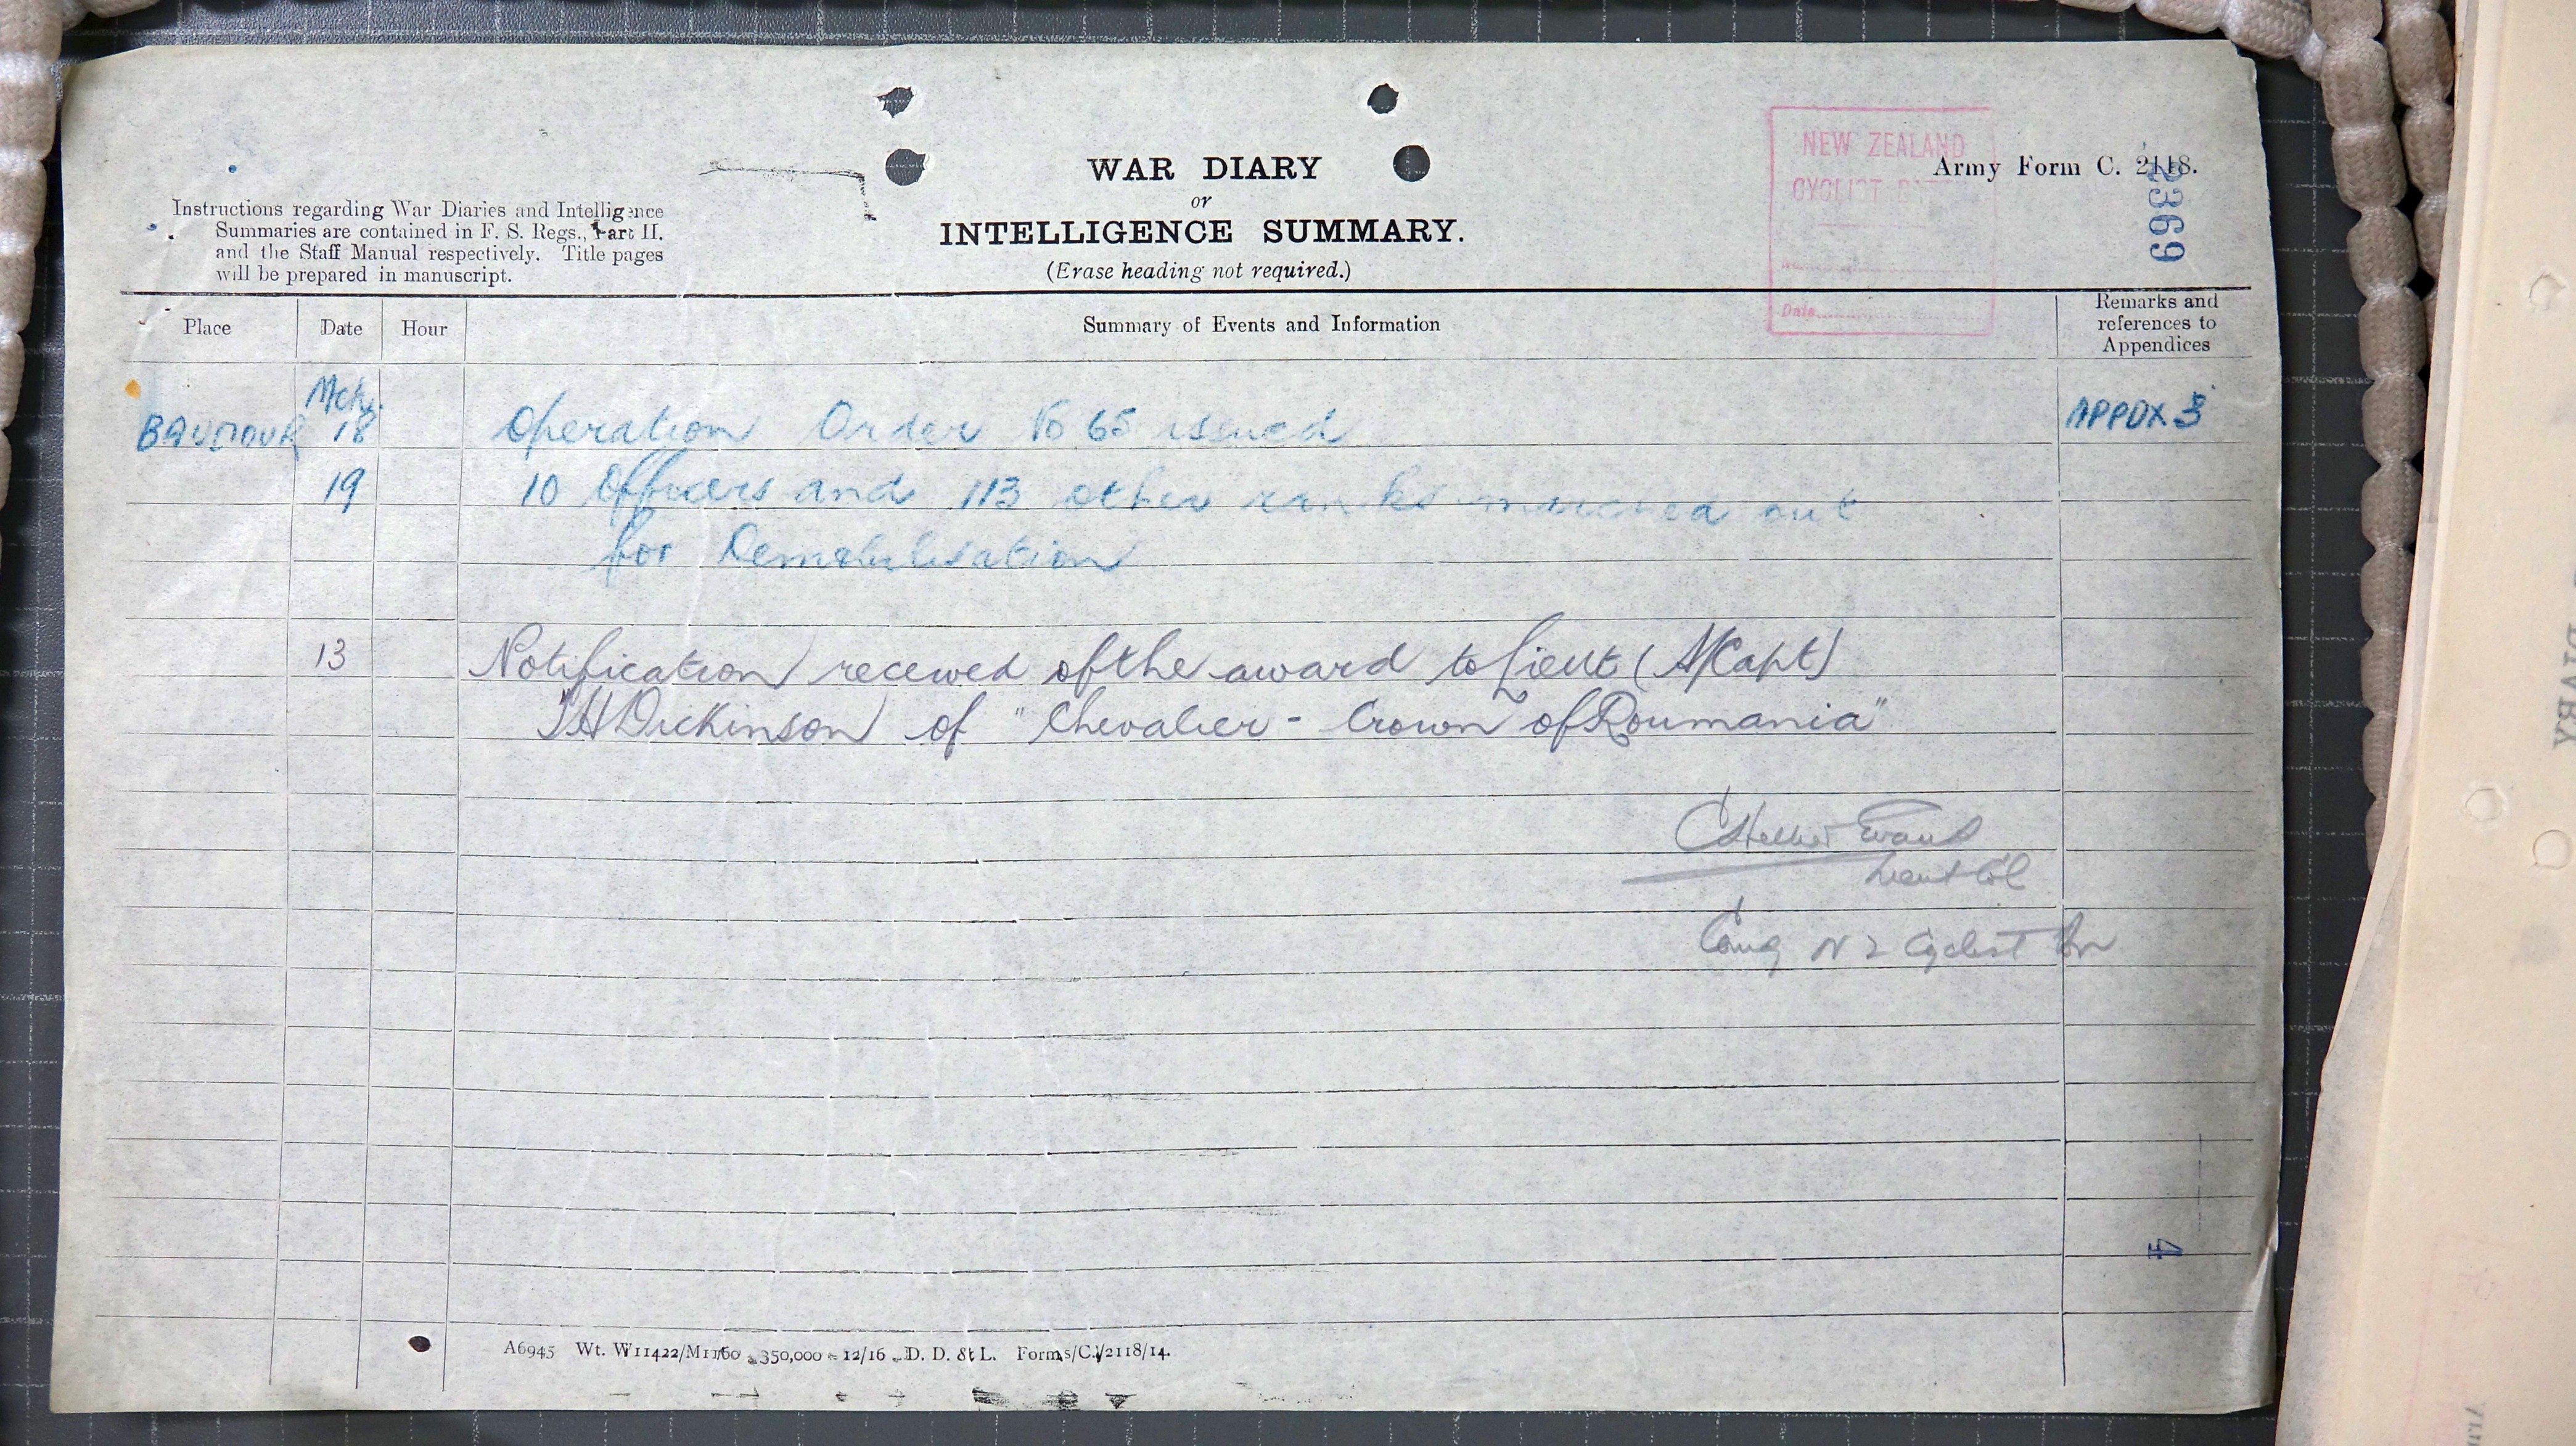 NEW ZEALAND
CYCLIST
Date
Army Form C. 2118.
2369
WAR DIARY
or
INTELLIGENCE SUMMARY.
(Erase heading not required.)
Instructions regarding War Diaries and Intelligence
Summaries are contained in F. S. Regs., Part II.
and the Staff Manual respectively. Title pages
will be prepared in manuscript.
Place Date Hour Summary of Events and Information Remarks and
references to
Appendices
Mch.
BAUDOUR 18 Operation Order No 65 issued APPDX 3
19 10 Officers and 113 other ranks marched out
for Demobilisation
13 Notification received of the award to Lieut (A/Capt)
Dickinson of "Chevalier - Crown of Roumania"
Evans
Lieut Col
Comg N Z Cyclist Bn
4
A6945 Wt. W11422/M1160 350,000 12/16 D. D. & L. Forms/C./2118/14.
DIARY